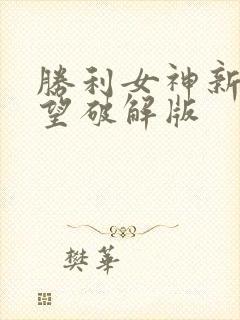 勝利女神新
望破解版
樊華